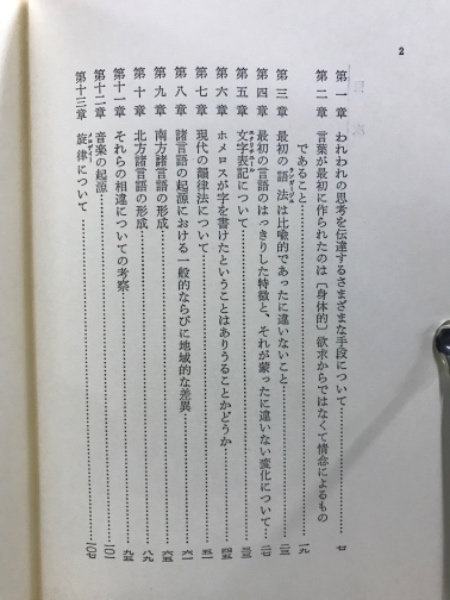 2
目次
第一章 われわれの思考を伝達するさまざまな手段について……七
第二章 言葉が最初に作られたのは〔身体的〕欲求からではなくて情念によるもの
であること……一九
第三章 最初の語法は比喩的であったに違いないこと……二三
第四章 最初の言語のはっきりした特徴と、それが蒙ったに違いない変化について……二七
第五章 文字表記について……三三
第六章 ホメロスが字を書けたということはありうることかどうか……四五
第七章 現代の韻律法について……五一
第八章 諸言語の起源における一般的ならびに地域的な差異……六一
第九章 南方諸言語の形成……六五
第十章 北方諸言語の形成……八九
第十一章 それらの相違についての考察……九五
第十二章 音楽の起源……一〇一
第十三章 旋律について……一〇七